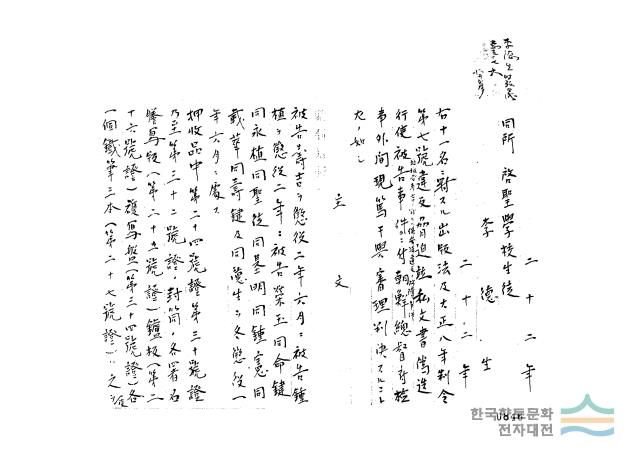 二十二年
同所 啓聖學校生徒
李德生
二十二年
右十一名ニ對スル出版法及大正八年制令
第七號違反脅迫並私文書僞造
行使被告事件ニ付朝鮮總督府檢
事外間現篤干與審理判決スルコト
左ノ如シ
主文
被告壽吉ヲ懲役二年六月ニ被告鍾
植ヲ懲役二年ニ被告榮玉同命鍵
同永植同聖徒同基明同鍾憲同
載華同壽鍵及同德生ヲ各懲役一
年六月ニ處ス
押收品中第二十四號證第三十號證
乃至第三十二號證ノ封筒各署名
謄寫版(第二十五號證)鑢板(第二
十六號證)複寫盤(第三十四號證)各
一個鐵筆三本(第二十七號證)ハ之ヲ
한국향토문화
전자대전
0846